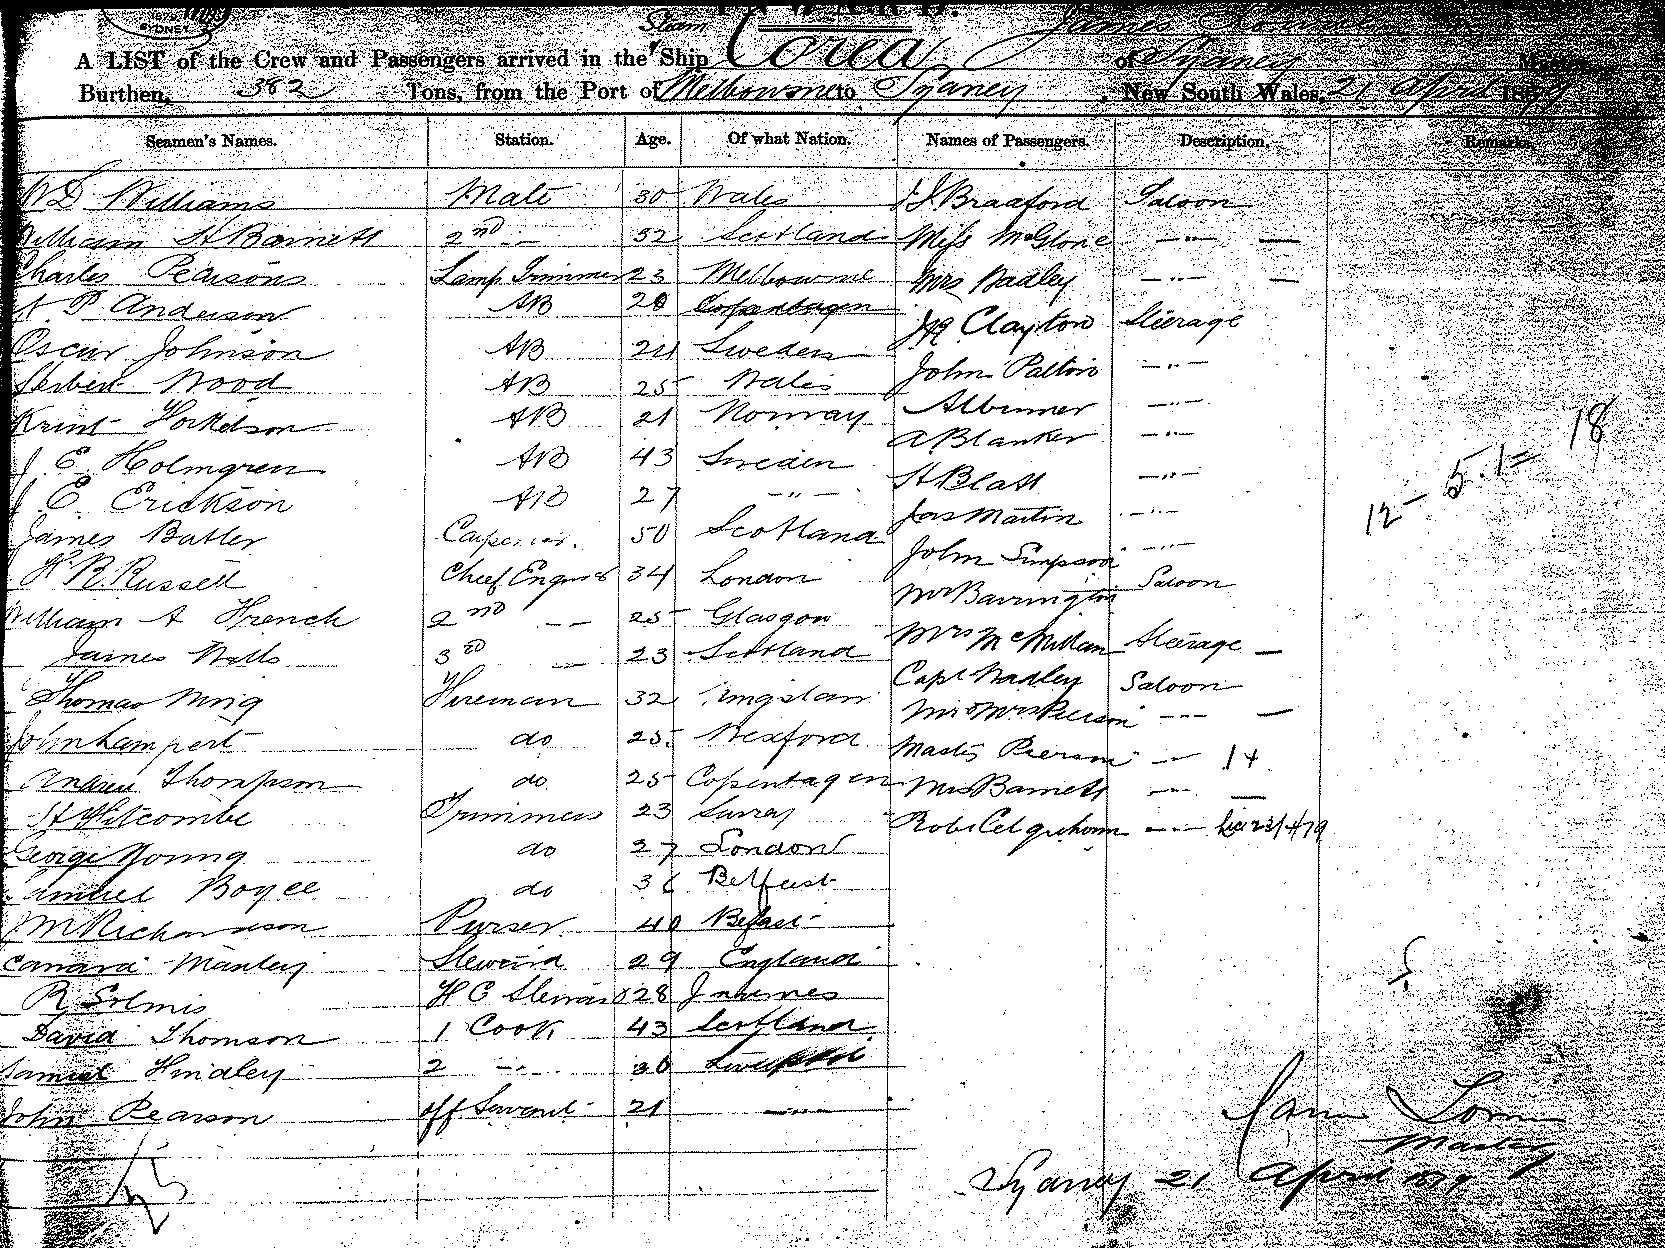 SYDNEY
INWARD.
Steam
A LIST of the Crew and Passengers arrived in the Ship Corea of Sydney James Master
Burthen, 382 Tons, from the Port of Melbourne to Sydney, New South Wales, 21 April 1879
Seamen's Names. Station. Age. Of what Nation. Names of Passengers. Description. Remarks.
W D Williams Mate 30 Wales J Bradford Saloon
William H Barnett 2nd -- 32 Scotland Miss McGlone -"- —
Charles Pearsons Lamp Trimmer 23 Melbourne Mrs Hadley -"- —
A P Anderson AB 20 Copenhagen Clayton Steerage
Oscar Johnson AB 24 Sweden John Patton -"-
Herbert Wood AB 25 Wales A Bruner -"-
Knut Torkelson AB 21 Norway A Blanker -"-
J E Holmgren AB 43 Sweden H Blatt -"-
J E Erickson AB 27 -"- Jas Martin -"-
James Butler Carpenter 50 Scotland John Simpson -"-
H R Russell Chief Engineer 34 London Mr Barrington Saloon
William A French 2nd -- 25 Glasgow Mrs McMillan Steerage —
James Watts 3rd — 23 Scotland Capt Hadley Saloon
Thomas King Fireman 32 Kingstown Mr & Mrs Pierson --- —
John Lampert do 25 Wexford Master Pierson -- 14
Andrew Thompson do 25 Copenhagen Mrs Barnett --- —
H Witcombe Trimmers 23 Surrey Robt --- 23/4/79
George Young do 27 London
Samuel Boyce do 36 Belfast
M Richardson Purser 40 Belfast
Manley Steward 29 England
R 2 C Steward 28
David Thomson 1 Cook 43 Scotland
Samuel Hindley 2 -"- 30 Liverpool
John Pearson Off Servant 21 -"-
18
12 - 5.1 =
Master
Sydney 21 April 1879